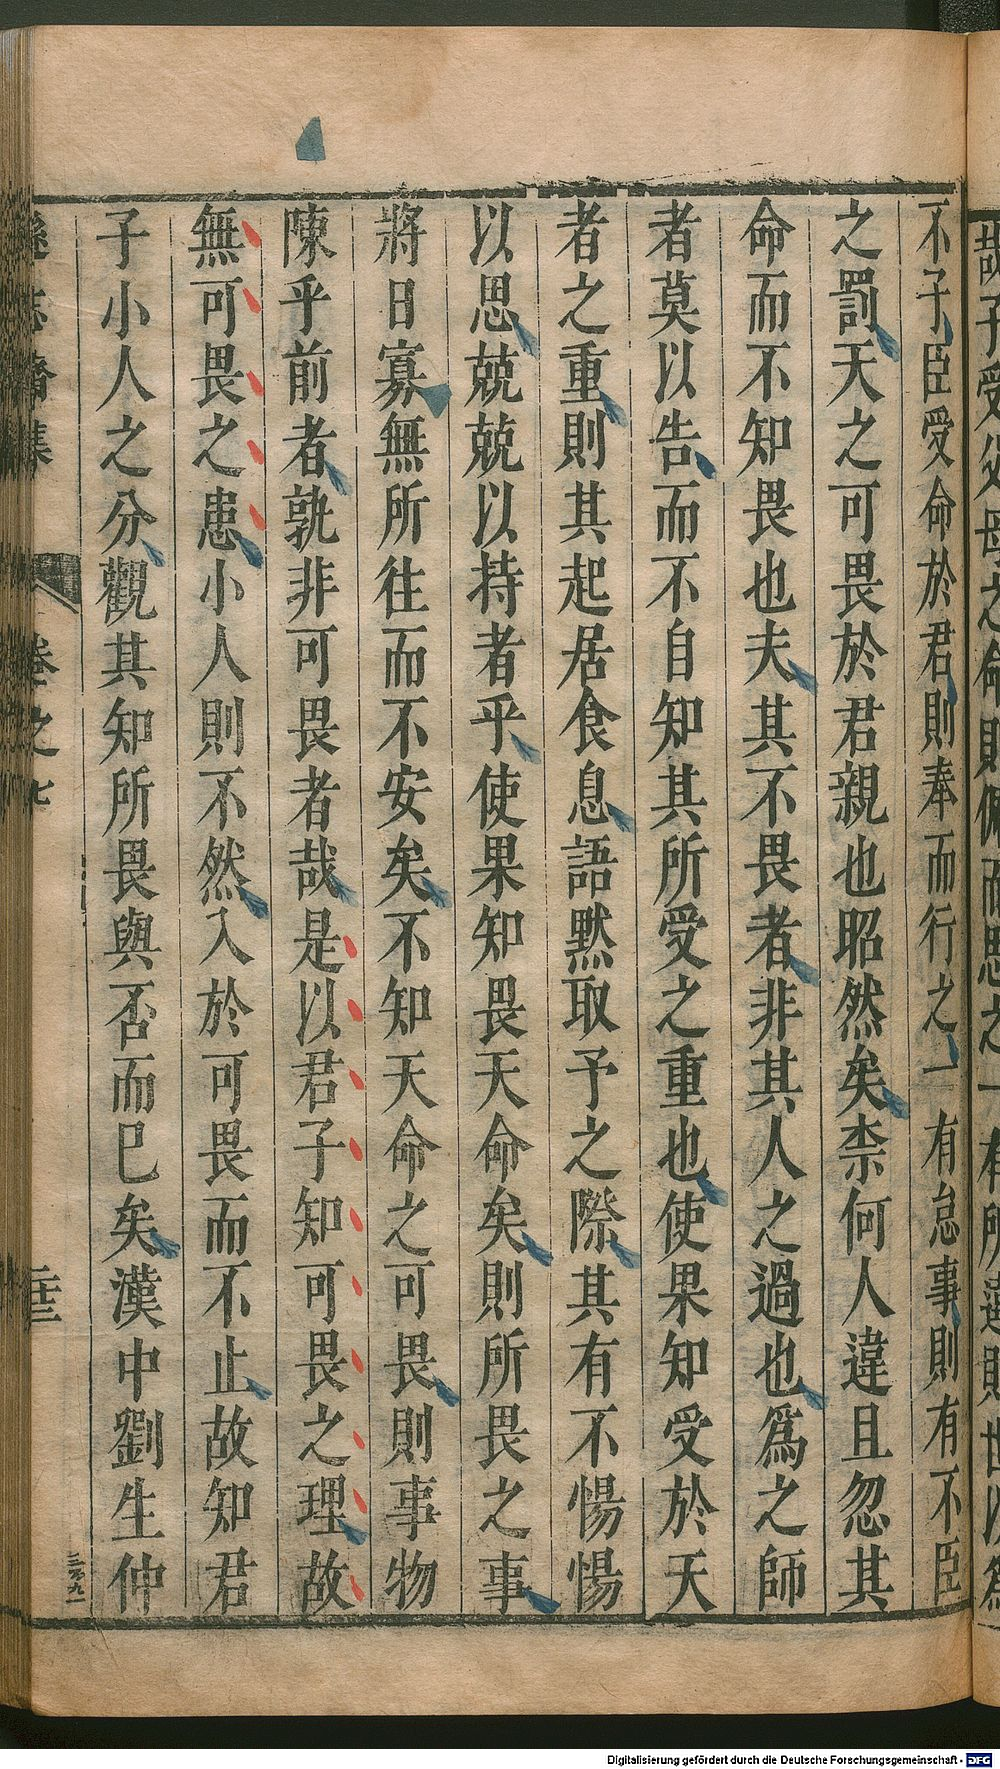 哉子受父母之命則俯而思之一有所違則世以爲
不子臣受命於君則奉而行之一有怠事則有不臣
之罰天之可畏於君親也昭然矣柰何人違且忽其
命而不知畏也夫其不畏者非其人之過也爲之師
者莫以告而不自知其所受之重也使果知受於天
者之重則其起居食息語默取予之際其有不惕惕
以思兢兢以持者乎使果知畏天命矣則所畏之事
將日寡無所往而不安矣不知天命之可畏則事物
陳乎前者孰非可畏者哉是以君子知可畏之理故
無可畏之患小人則不然入於可畏而不止故知君
子小人之分觀其知所畏與否而已矣漢中劉生仲
遜志齋集
卷之七
二十三
三百九一
Digitalisierung gefördert durch die Deutsche Forschungsgemeinschaft - DFG